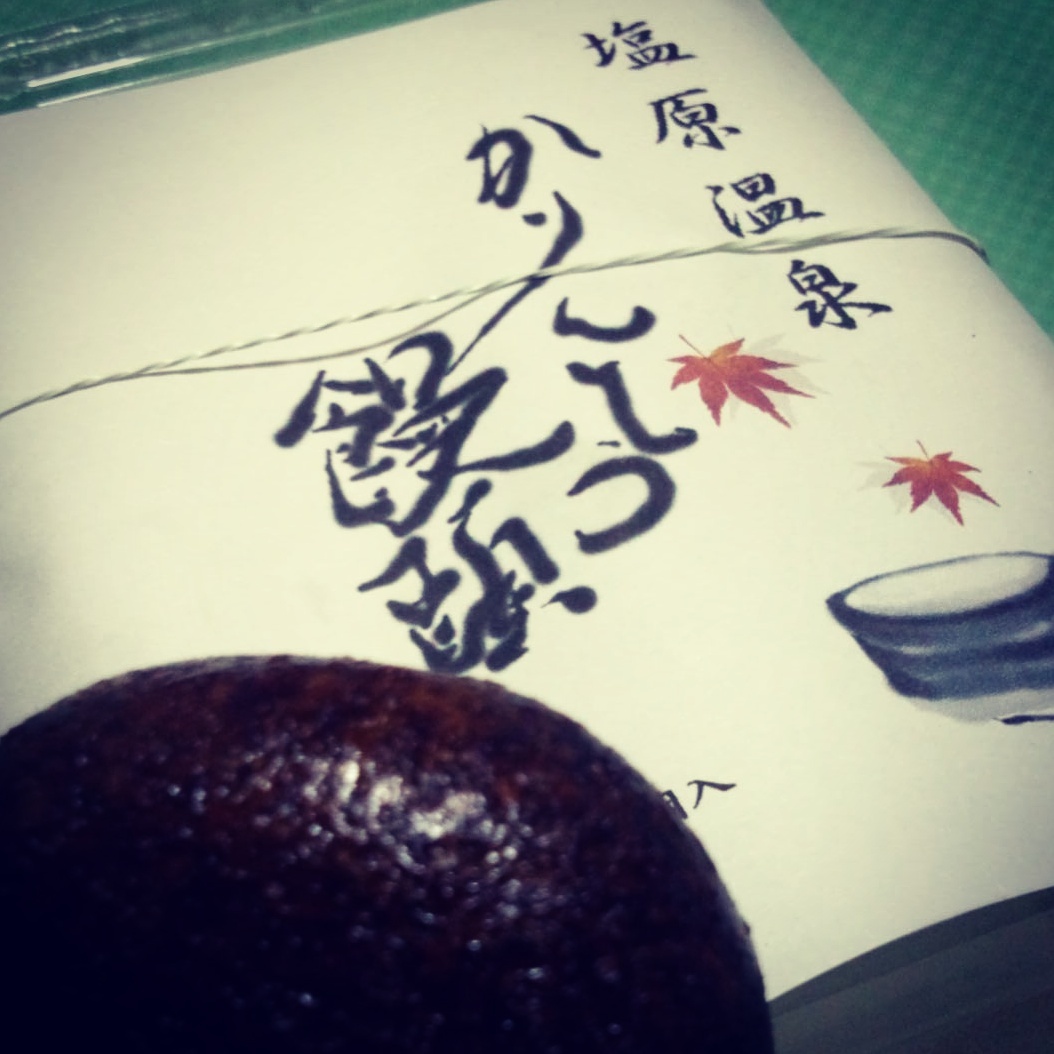 塩原温泉
かりんとう
饅頭
入